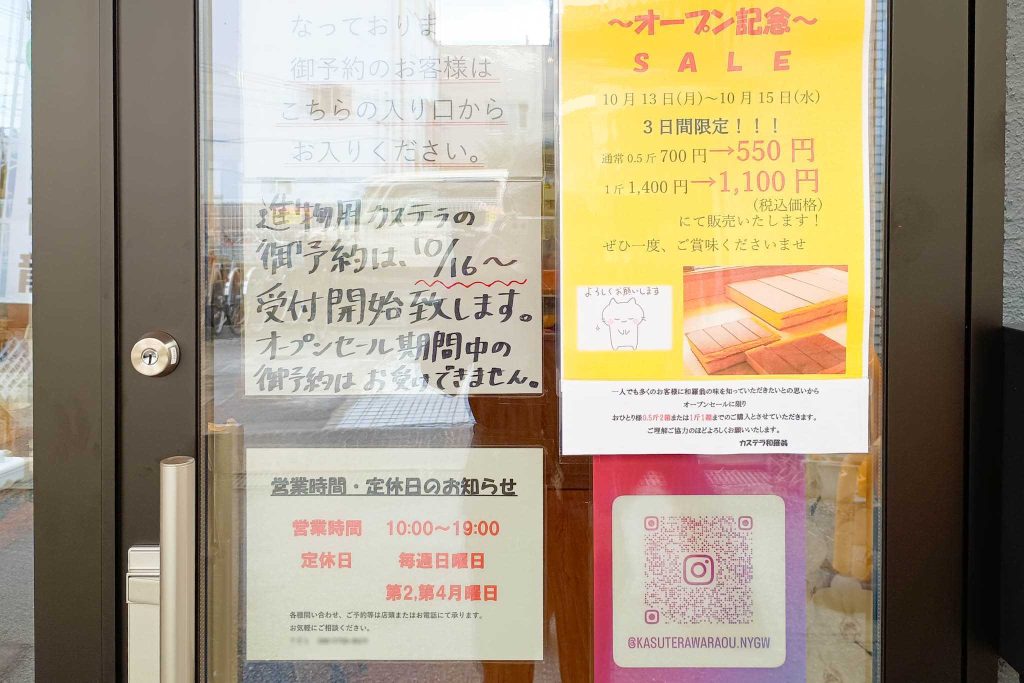 なっておりま
御予約のお客様は
こちらの入り口から
お入りください。
進物用カステラの
御予約は、10/16〜
受付開始致します。
オープンセール期間中の
御予約はお受けできません。
営業時間・定休日のお知らせ
営業時間 10:00〜19:00
定休日 毎週日曜日
第2,第4月曜日
各種問い合わせ、ご予約等は店頭またはお電話にて承ります。
お気軽にご相談ください。
〜オープン記念〜
SALE
10月13日(月)〜10月15日(水)
3日間限定！！！
通常0.5斤 700円→550円
1斤 1,400円→1,100円
(税込価格)
にて販売いたします！
ぜひ一度、ご賞味くださいませ
よろしくお願いします
一人でも多くのお客様に和羅翁の味を知っていただきたいとの思いから
オープンセールに限り
おひとり様0.5斤2箱または1斤1箱までのご購入とさせていただきます。
ご理解ご協力のほどよろしくお願いいたします。
カステラ和羅翁
@KASUTERAWARAOU.NYGW